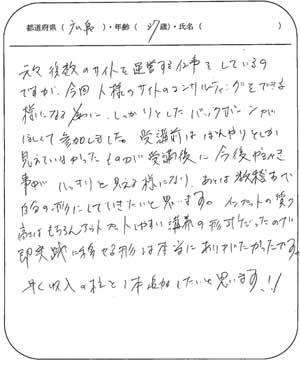 都道府県（広島）・年齢（37歳）・氏名（　　　）
元々複数のサイトを運営する仕事をしているの
ですが、今回人様のサイトのコンサルティングをできる
様になる為に、しっかりとしたバックボーンが
ほしくて参加しました。受講前はぼんやりとしか
見えていなかったものが受講後に今後やるべき
事がハッキリと見える様になり、あとは数稽古で
自分の形にしていきたいと思います。インプットの質の
高さはもちろんアウトプットしやすい講義の形式だったので
即実践に移せる形は本当にありがたかったです。
早く収入の柱を1本追加したいと思います!!